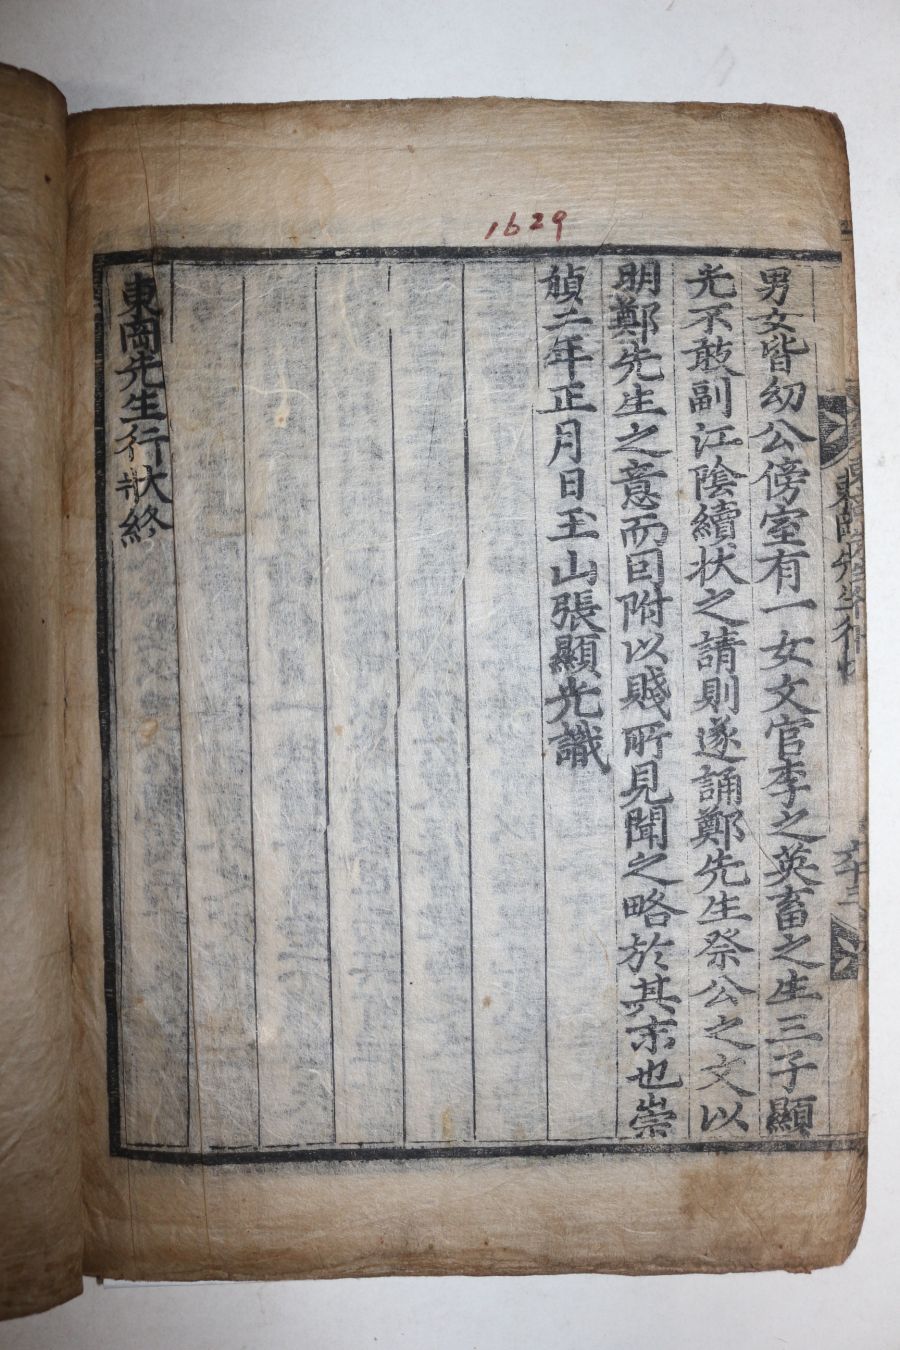 1629
男女皆幼公傍室有一女文官李之英畜之生三子顯
光不敢副江陰續狀之請則遂誦鄭先生祭公之文以
明鄭先生之意而因附以賤所見聞之略於其末也崇
禎二年正月日玉山張顯光識
東岡先生行狀終
東岡先生行狀